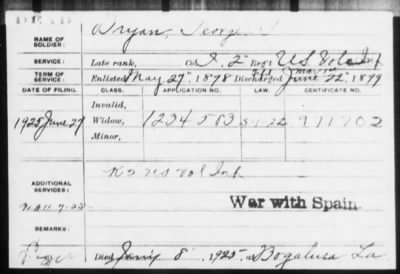 DEAD
NAME OF SOLDIER: Bryan,
SERVICE: Late rank, Co. I, 2" Reg't U S Vols Inf.
TERM OF SERVICE: Enlisted May 27", 1898 Discharged June 22, 1899
DATE OF FILING. CLASS. APPLICATION NO. LAW. CERTIFICATE NO.
Invalid,
1925 June 29 Widow, 1234 583 971702
Minor,
ADDITIONAL SERVICES: K 2 U S Vol Inf
War with Spain
REMARKS:
Died 8", 1925, at Bogalusa La